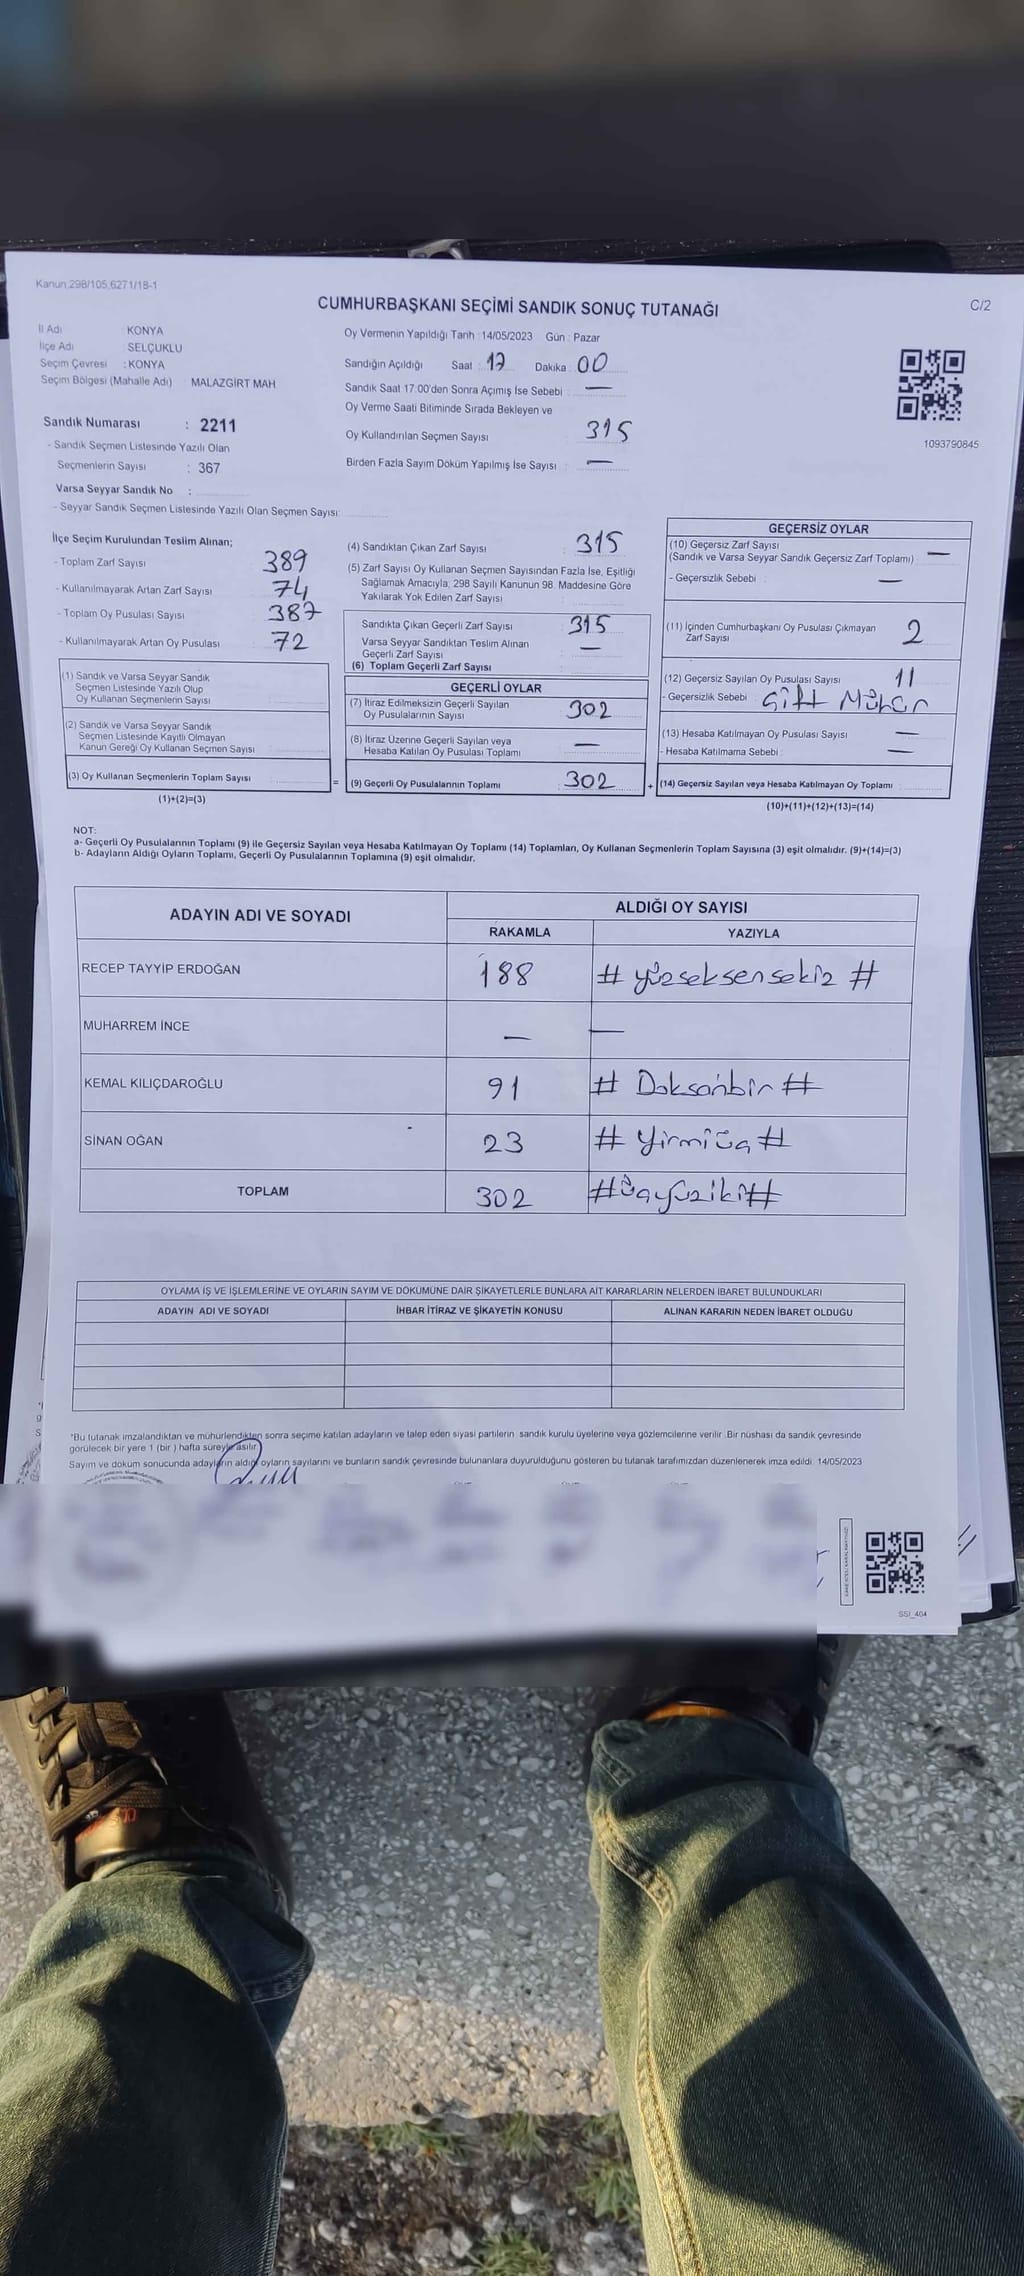 Kanun,298/105,6271/18-1
CUMHURBAŞKANI SEÇİMİ SANDIK SONUÇ TUTANAĞI
C/2
İl Adı : KONYA
İlçe Adı : SELÇUKLU
Seçim Çevresi : KONYA
Seçim Bölgesi (Mahalle Adı) : MALAZGİRT MAH
Sandık Numarası : 2211
- Sandık Seçmen Listesinde Yazılı Olan
Seçmenlerin Sayısı : 367
Varsa Seyyar Sandık No :
- Seyyar Sandık Seçmen Listesinde Yazılı Olan Seçmen Sayısı:
Oy Vermenin Yapıldığı Tarih : 14/05/2023 Gün : Pazar
Sandığın Açıldığı Saat : 17 Dakika : 00
Sandık Saat 17:00'den Sonra Açımış İse Sebebi : —
Oy Verme Saati Bitiminde Sırada Bekleyen ve
Oy Kullandırılan Seçmen Sayısı : 315
Birden Fazla Sayım Döküm Yapılmış İse Sayısı : —
1093790845
İlçe Seçim Kurulundan Teslim Alınan;
- Toplam Zarf Sayısı : 389
- Kullanılmayarak Artan Zarf Sayısı : 74
- Toplam Oy Pusulası Sayısı : 387
- Kullanılmayarak Artan Oy Pusulası : 72
(1) Sandık ve Varsa Seyyar Sandık
Seçmen Listesinde Yazılı Olup
Oy Kullanan Seçmenlerin Sayısı :
(2) Sandık ve Varsa Seyyar Sandık
Seçmen Listesinde Kayıtlı Olmayan
Kanun Gereği Oy Kullanan Seçmen Sayısı :
(3) Oy Kullanan Seçmenlerin Toplam Sayısı :
(1)+(2)=(3)
=
(4) Sandıktan Çıkan Zarf Sayısı : 315
(5) Zarf Sayısı Oy Kullanan Seçmen Sayısından Fazla İse, Eşitliği
Sağlamak Amacıyla; 298 Sayılı Kanunun 98. Maddesine Göre
Yakılarak Yok Edilen Zarf Sayısı :
Sandıkta Çıkan Geçerli Zarf Sayısı : 315
Varsa Seyyar Sandıktan Teslim Alınan
Geçerli Zarf Sayısı : —
(6) Toplam Geçerli Zarf Sayısı :
GEÇERLİ OYLAR
(7) İtiraz Edilmeksizin Geçerli Sayılan
Oy Pusulalarının Sayısı : 302
(8) İtiraz Üzerine Geçerli Sayılan veya
Hesaba Katılan Oy Pusulası Toplamı : —
(9) Geçerli Oy Pusulalarının Toplamı : 302
+
GEÇERSİZ OYLAR
(10) Geçersiz Zarf Sayısı
(Sandık ve Varsa Seyyar Sandık Geçersiz Zarf Toplamı) : —
- Geçersizlik Sebebi : —
(11) İçinden Cumhurbaşkanı Oy Pusulası Çıkmayan
Zarf Sayısı : 2
(12) Geçersiz Sayılan Oy Pusulası Sayısı : 11
- Geçersizlik Sebebi : Çift Mühür
(13) Hesaba Katılmayan Oy Pusulası Sayısı : —
- Hesaba Katılmama Sebebi : —
(14) Geçersiz Sayılan veya Hesaba Katılmayan Oy Toplamı :
(10)+(11)+(12)+(13)=(14)
NOT:
a- Geçerli Oy Pusulalarının Toplamı (9) ile Geçersiz Sayılan veya Hesaba Katılmayan Oy Toplamı (14) Toplamları, Oy Kullanan Seçmenlerin Toplam Sayısına (3) eşit olmalıdır. (9)+(14)=(3)
b- Adayların Aldığı Oyların Toplamı, Geçerli Oy Pusulalarının Toplamına (9) eşit olmalıdır.
ADAYIN ADI VE SOYADI ALDIĞI OY SAYISI
RAKAMLA YAZIYLA
RECEP TAYYİP ERDOĞAN 188 # yüzseksensekiz #
MUHARREM İNCE — —
KEMAL KILIÇDAROĞLU 91 # Doksanbir #
SİNAN OĞAN 23 # Yirmiüç #
TOPLAM 302 # üçyüziki #
OYLAMA İŞ VE İŞLEMLERİNE VE OYLARIN SAYIM VE DÖKÜMÜNE DAİR ŞİKAYETLERLE BUNLARA AİT KARARLARIN NELERDEN İBARET BULUNDUKLARI
ADAYIN ADI VE SOYADI İHBAR İTİRAZ VE ŞİKAYETİN KONUSU ALINAN KARARIN NEDEN İBARET OLDUĞU
*Bu tutanak imzalandıktan ve mühürlendikten sonra seçime katılan adayların ve talep eden siyasi partilerin sandık kurulu üyelerine veya gözlemcilerine verilir. Bir nüshası da sandık çevresinde
görülecek bir yere 1 (bir ) hafta süreyle asılır.
Sayım ve döküm sonucunda adayların aldığı oyların sayılarını ve bunların sandık çevresinde bulunanlara duyurulduğunu gösteren bu tutanak tarafımızdan düzenlenerek imza edildi. 14/05/2023
SSI_404